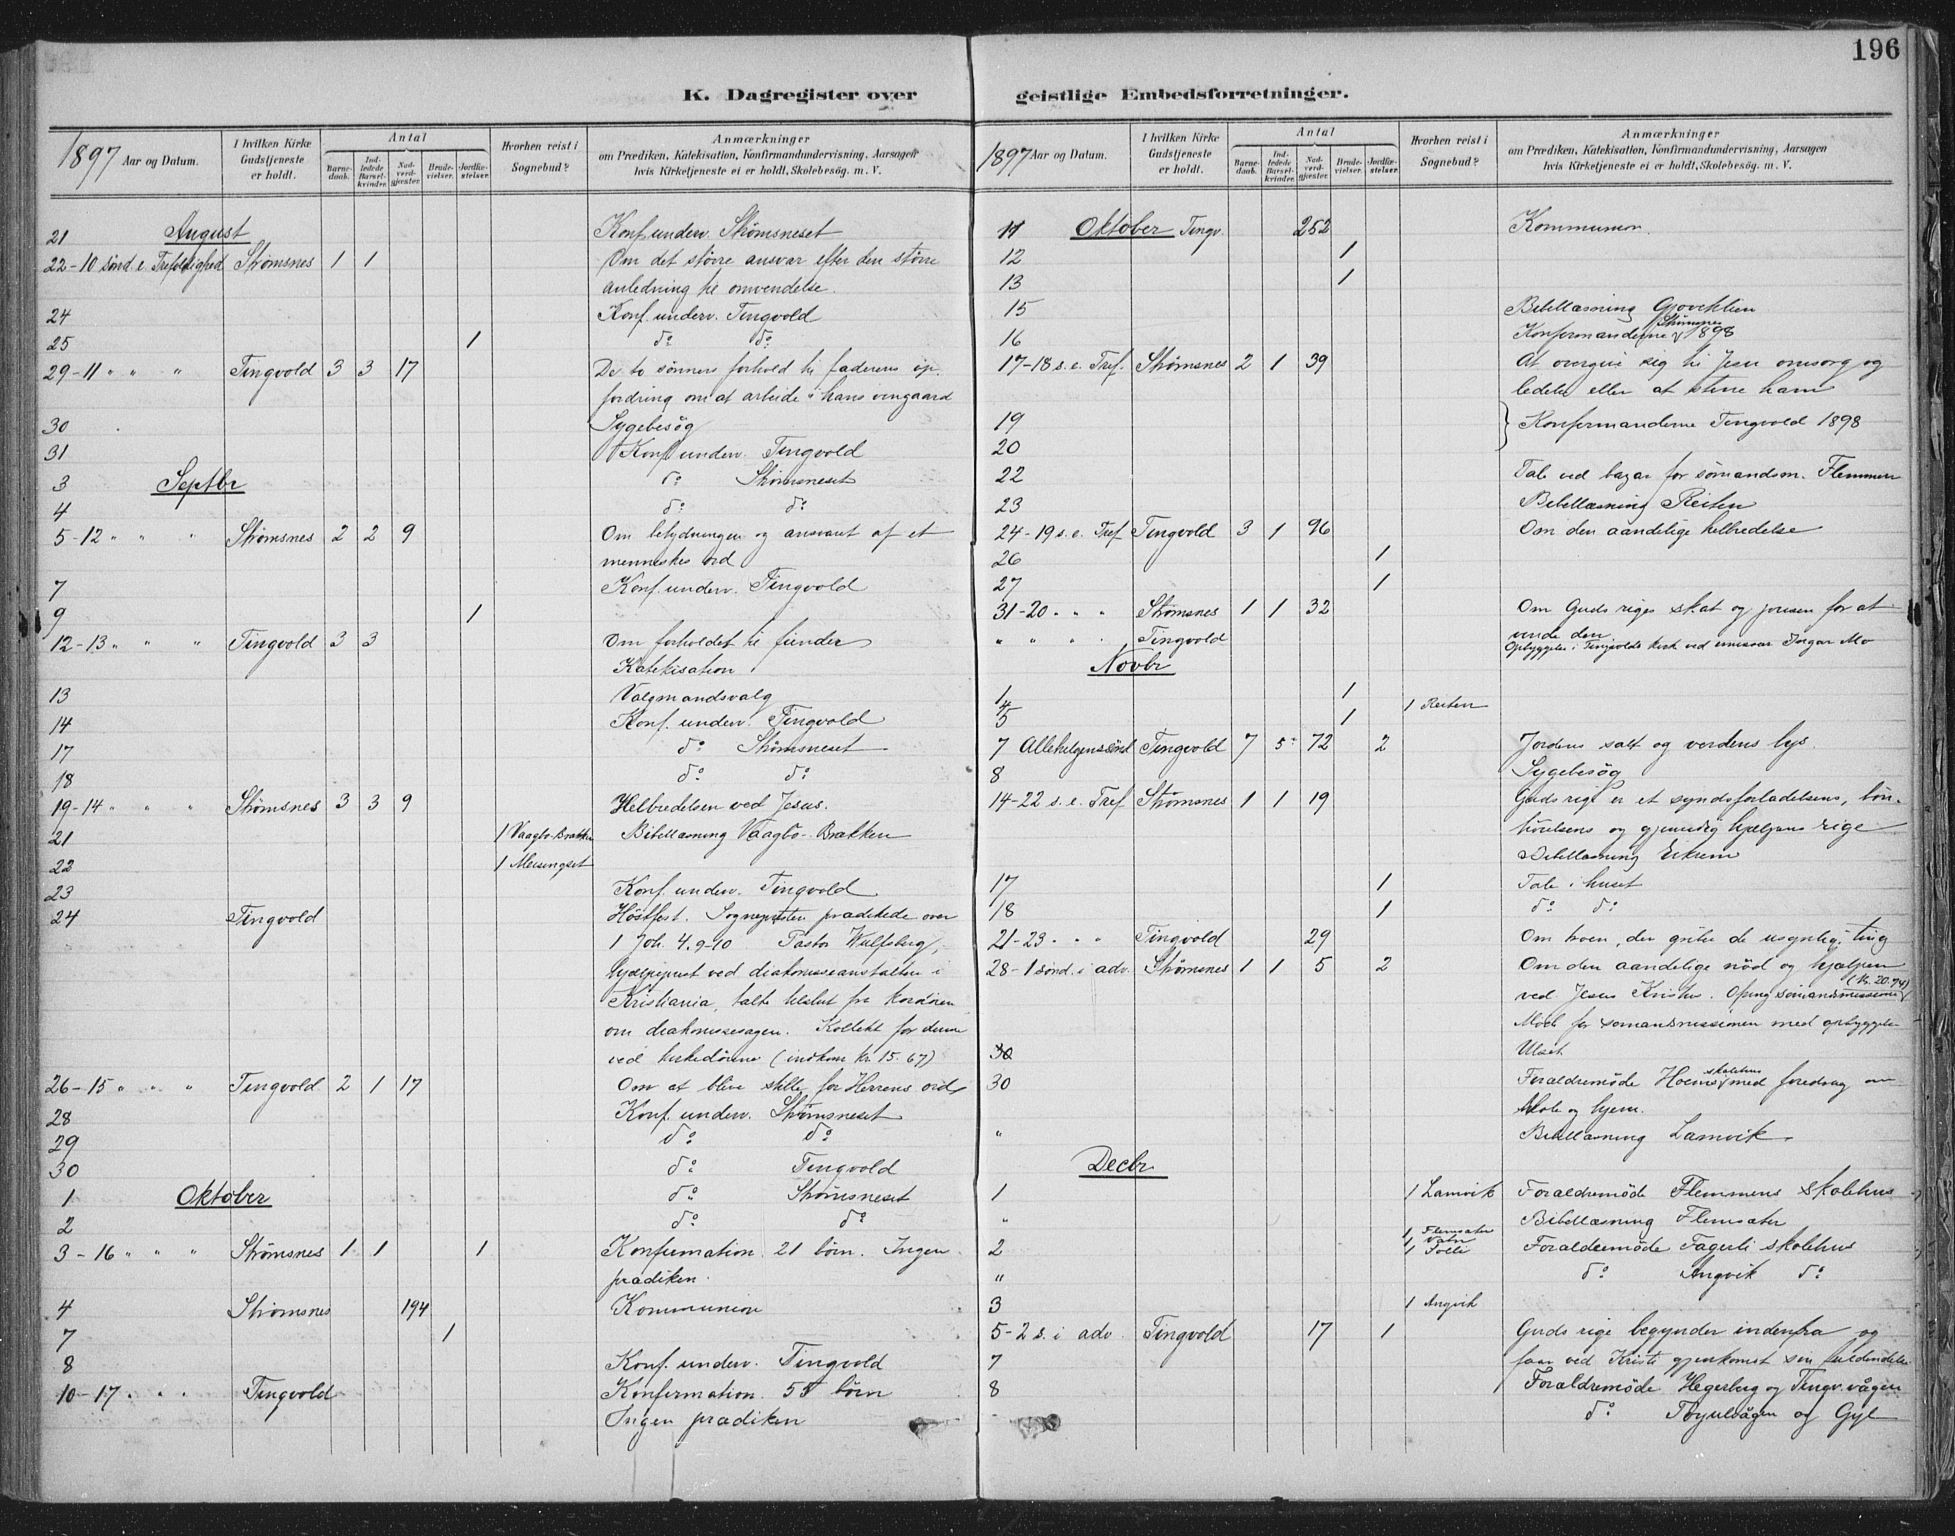 196
K. Dagregister over
1897 Aar og Datum. I hvilken Kirke Gudstjeneste er holdt. Antal Barnedaab. Indledede Barselkvinder. Nadverdgjæster. Brudevielser. Jordfæstelser. Hvorhen reist i Sognebud? Anmærkninger
om Prædiken, Katekisation, Konfirmandundervisning, Aarsagen
hvis Kirketjeneste ei er holdt, Skolebesög. m. V.
21 August Konf. underv. Strømsneset
22-10 sönd. e. Trefoldighed Strømsnes 1 1 Om det större ansvar efter den större
anledning til omvendelse.
24 Konf. underv. Tingvold
25 1 do do
29-11 " " " Tingvold 3 3 17 De to sønners forhold til faderens op
fordring om at arbeide i hans vingaard
30 Sygebesög
31 Konf. underv. Tingvold
3 Septbr do Strømsneset
4 do do
5-12 " " " Strømsnes 2 2 9 Om betydningen og ansvaret af et
menneskes ord
7 Konf. underv. Tingvold
9 1
12-13 " " " Tingvold 3 3 Om forholdet til fiender
Katekisation
13 Valgmandsvalg
14 Konf. underv. Tingvold
17 do Strømsneset
18 do do
19-14 " " " Strømsnes 3 3 9 Helbredelsen ved Jesus.
21 1 Vaagbö-Brakken Bibellæsning Vaagbö-Brakken
22 1 Meisingset
23 Konf. underv. Tingvold
24 Tingvold Höstfest. Sognepresten prædikede over
1 Joh. 4. 9-10 Pastor Wulfsberg,
hjælpeprest ved diakonisseanstalten i
Kristiania, talte tilslut fra kordören
om diakonissesagen. Kollekt for denne
ved kirkedörene (indkom kr. 15.67)
26-15 " " " Tingvold 2 1 17 Om at blive stille for Herrens ord
28 Konf. underv. Strømsneset
29 do do
30 do Tingvold
1 Oktober do Strømsneset
2 do do
3-16 " " " Strømsnes 1 1 1 Konfirmation. 21 börn. Ingen
prædiken.
4 Strømsnes 194 Kommunion
7 1
8 Konf. underv. Tingvold
10-17 " " Tingvold Konfirmation. 55 börn
Ingen prædiken
geistlige Embedsforretninger.
1897 Aar og Datum. I hvilken Kirke Gudstjeneste er holdt. Antal Barnedaab. Indledede Barselkvinder. Nadverdgjæster. Brudevielser. Jordfæstelser. Hvorhen reist i Sognebud? Anmærkninger
om Prædiken, Katekisation, Konfirmandundervisning, Aarsagen
hvis Kirketjeneste ei er holdt, Skolebesög. m. V.
11 Oktober Tingv. 252 Kommunion.
12 1
13 1
15 Bibellæsning
16 Konfermanderne Strømsnes 1898
17-18 s. e. Tref. Strømsnes 2 1 39 At overgive sig til Jesu omsorg og
ledelse eller at stene ham
19 Konfermanderne Tingvold 1898
20
22 Tale ved bazar for sömandsm. Flemmen
23 Bibellæsning Reiten
24-19 s. e. Tref Tingvold 3 1 96 Om den aandelige helbredelse
26 1
27 1
31-20 " " Strømsnes 1 1 32 Om Guds riges skat og prisen for at
vinde den.
" " " " Tingvold Opbyggelse i Tingvolds kirke ved emissær Ingar Mo
Novbr
1 1
4 1 Reiten
5 1
7 Allehelgenssönd Tingvold 7 5 72 2 Jordens salt og verdens lys.
8 Sygebesög
14-22 s. e. Tref Strømsnes 1 1 19 Guds rige er et syndsforladelsens, bön-
hörelsens og gjensidig hjælpens rige
Bibellæsning Eikrem
17 1 Tale i huset
18 1 do do
21-23 " " Tingvold 29 Om troen, der griber de usynlige ting
28-1 sönd. i adv. Strømsnes 1 1 5 2 Om den aandelige nöd og hjælpen
ved Jesus Kristus. Ofring sömandsmissionen (kr. 20.74)
Möde for sömandsmissionen med opbyggelse
30 Ulset
30 Foraldremöde Hoems skolehus med foredrag om
skole og hjem.
" Bibellæsning Lamvik
Decbr
1 1 Lamvik Foraldremöde Flemmens skolehus
" Bibellæsning Flemsæter
1 Flemsæter
1 Vatn
2 1 Tolli Foraldremöde Fagerli skolehus
" do Angvik do
3 1 Angvik
5-2 s. i adv. Tingvold 17 1 Guds rige begynder indenfra og
7 faar ved Kristi gjenkomst sin fuldendelse
8 Foraldremöde Hegerberg og Tingv.vågen
do og Gyl